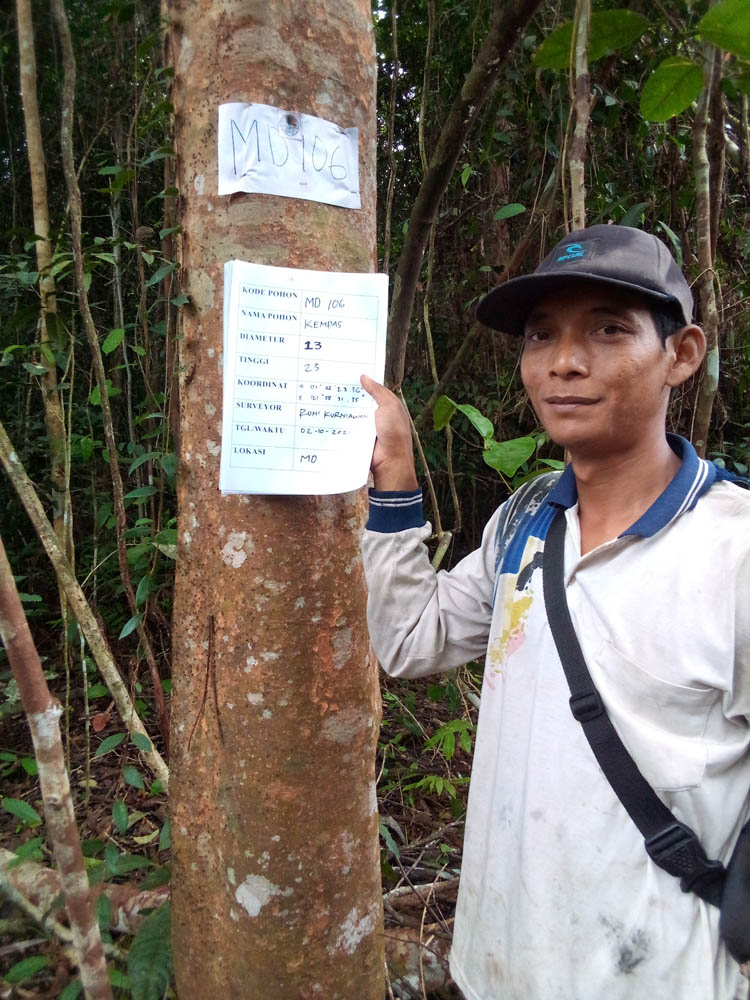 MD 106
KODE POHON MD 106
NAMA POHON KEMPAS
DIAMETER 13
TINGGI 25
KOORDINAT N 01°
SURVEYOR RONI KURNIAWAN
TGL/WAKTU 02-10-202
LOKASI MD
RIP CURL